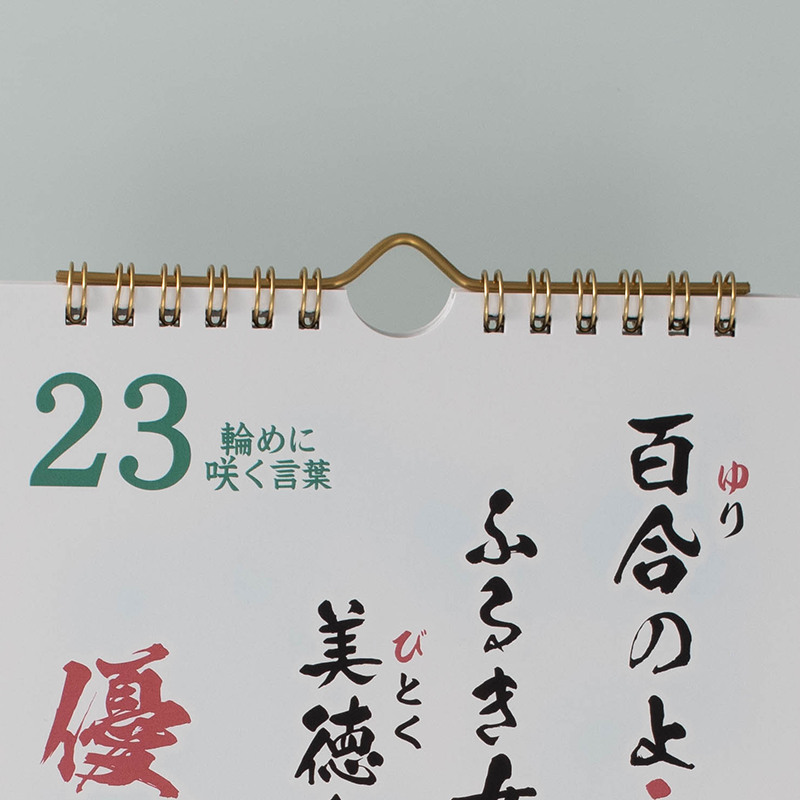 23
輪めに
咲く言葉
百合のよ
ゆり
ふるき
美徳
びとく
優